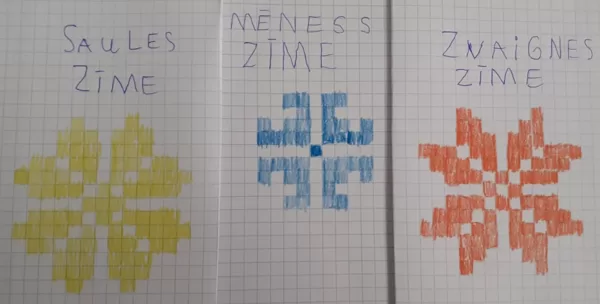 SAULES
ZĪME
MĒNESS
ZĪME
ZVAIGNES
ZĪME